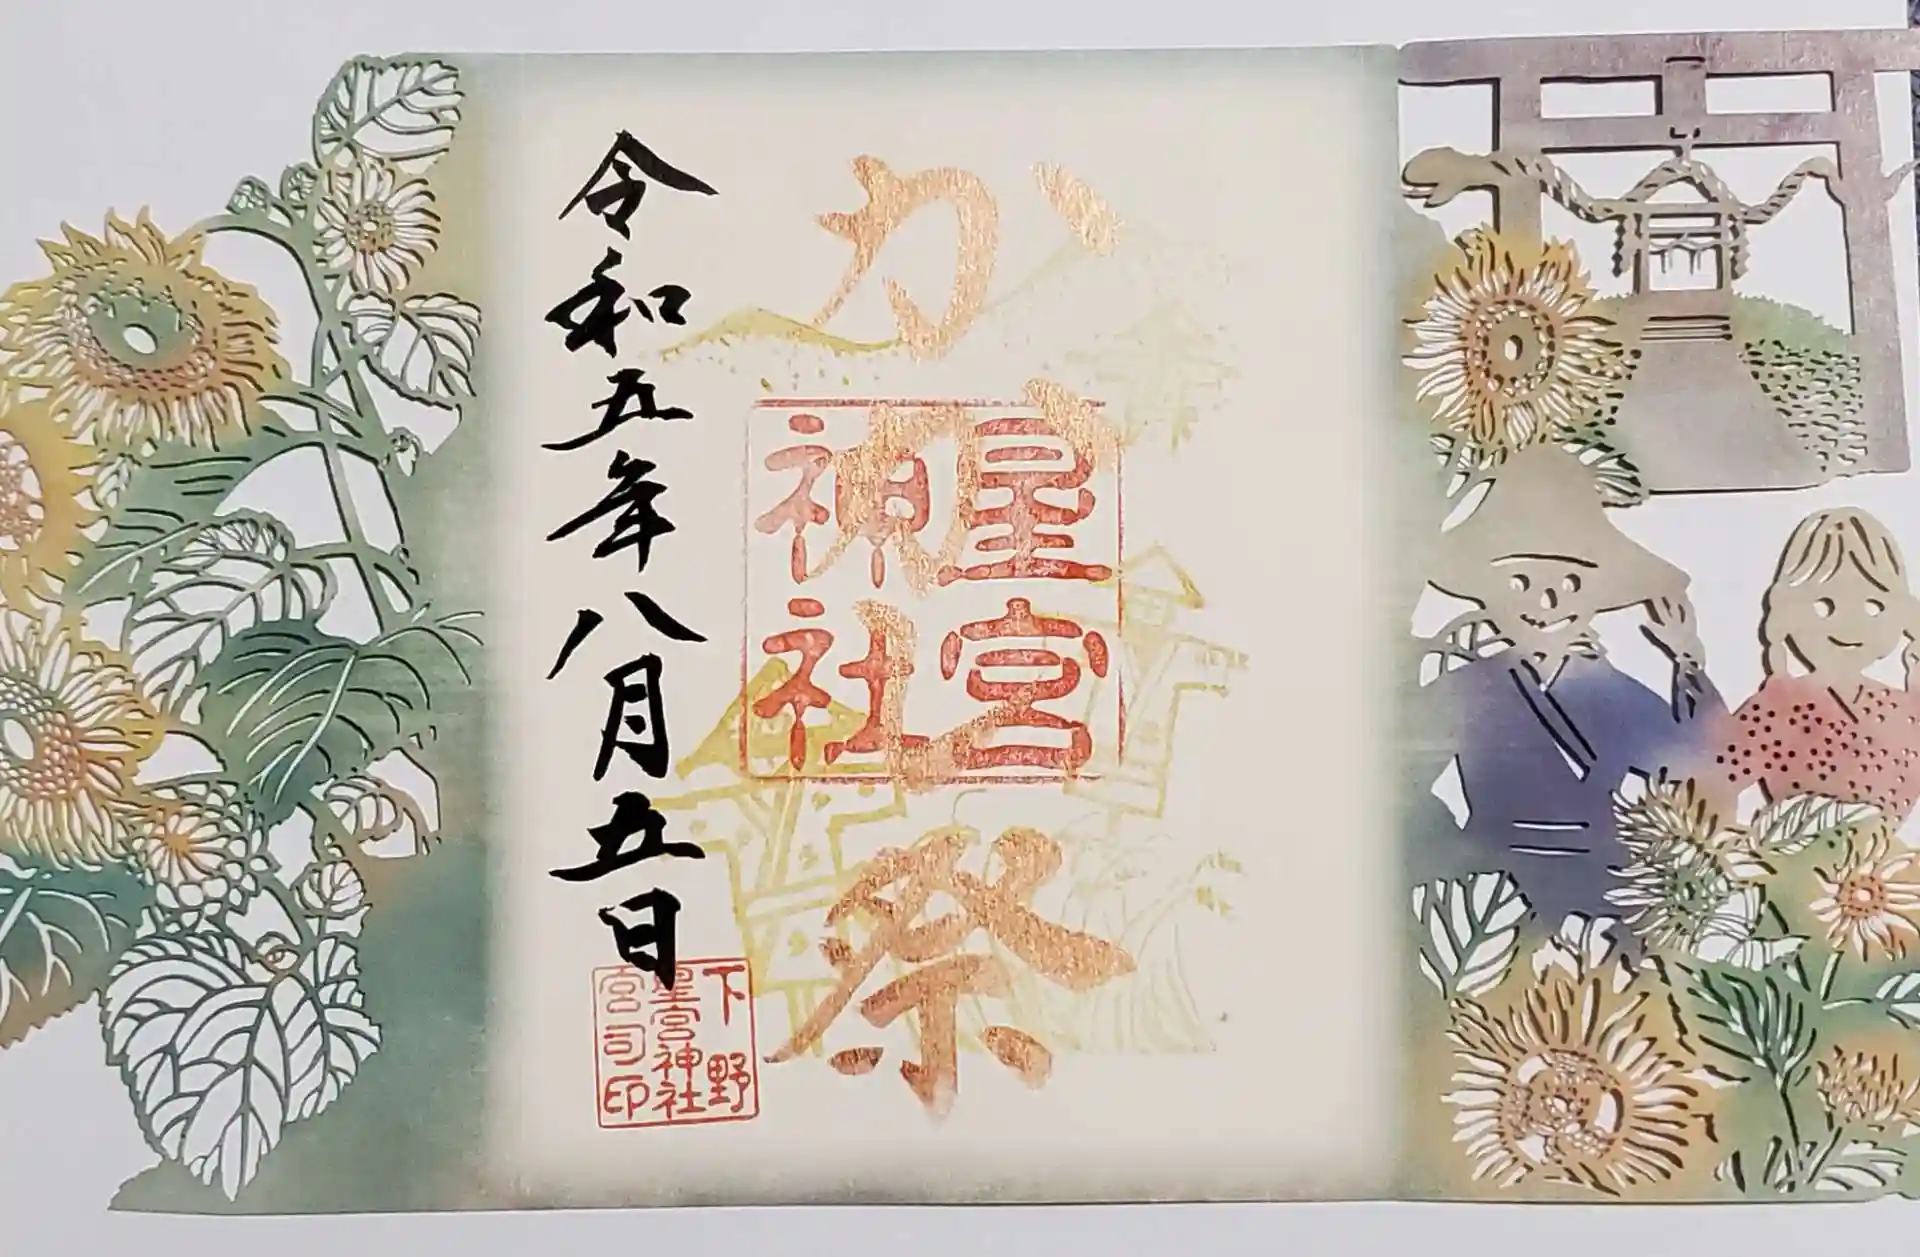 かかし祭
星宮
神社
令和五年八月五日
下野
星宮神社
宮司印